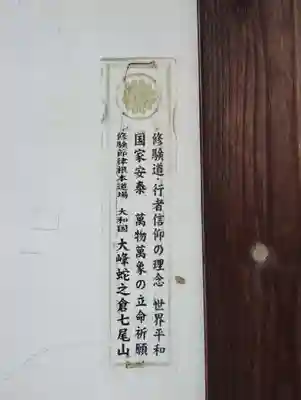 修験道・行者信仰の理念 世界平和
国家安泰 萬物萬象の立命祈願
修験節律根本道場 大和国 大峰蛇之倉七尾山